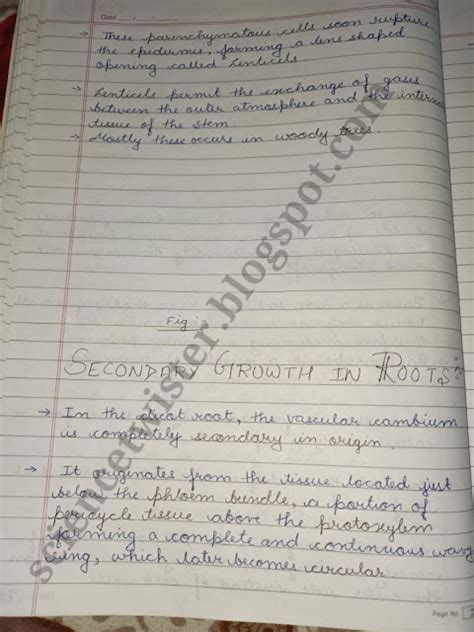 Date ..../..../........
→ These parenchymatous cells soon rupture
the epidermis, forming a lens shaped
opening called Lenticels
→ Lenticels permit the exchange of gases
between the outer atmosphere and the internal
tissue of the stem.
→ Mostly these occurs in woody trees
Fig :-
SECONDARY GROWTH IN ROOTS :-
→ In the dicot root, the vascular cambium
is completely secondary in origin.
→ It originates from the tissue located just
below the phloem bundle, a portion of
pericycle tissue above the protoxylem
forming a complete and continuous wavy
ring, which later becomes circular
Page No
sciencetwister.blogspot.com